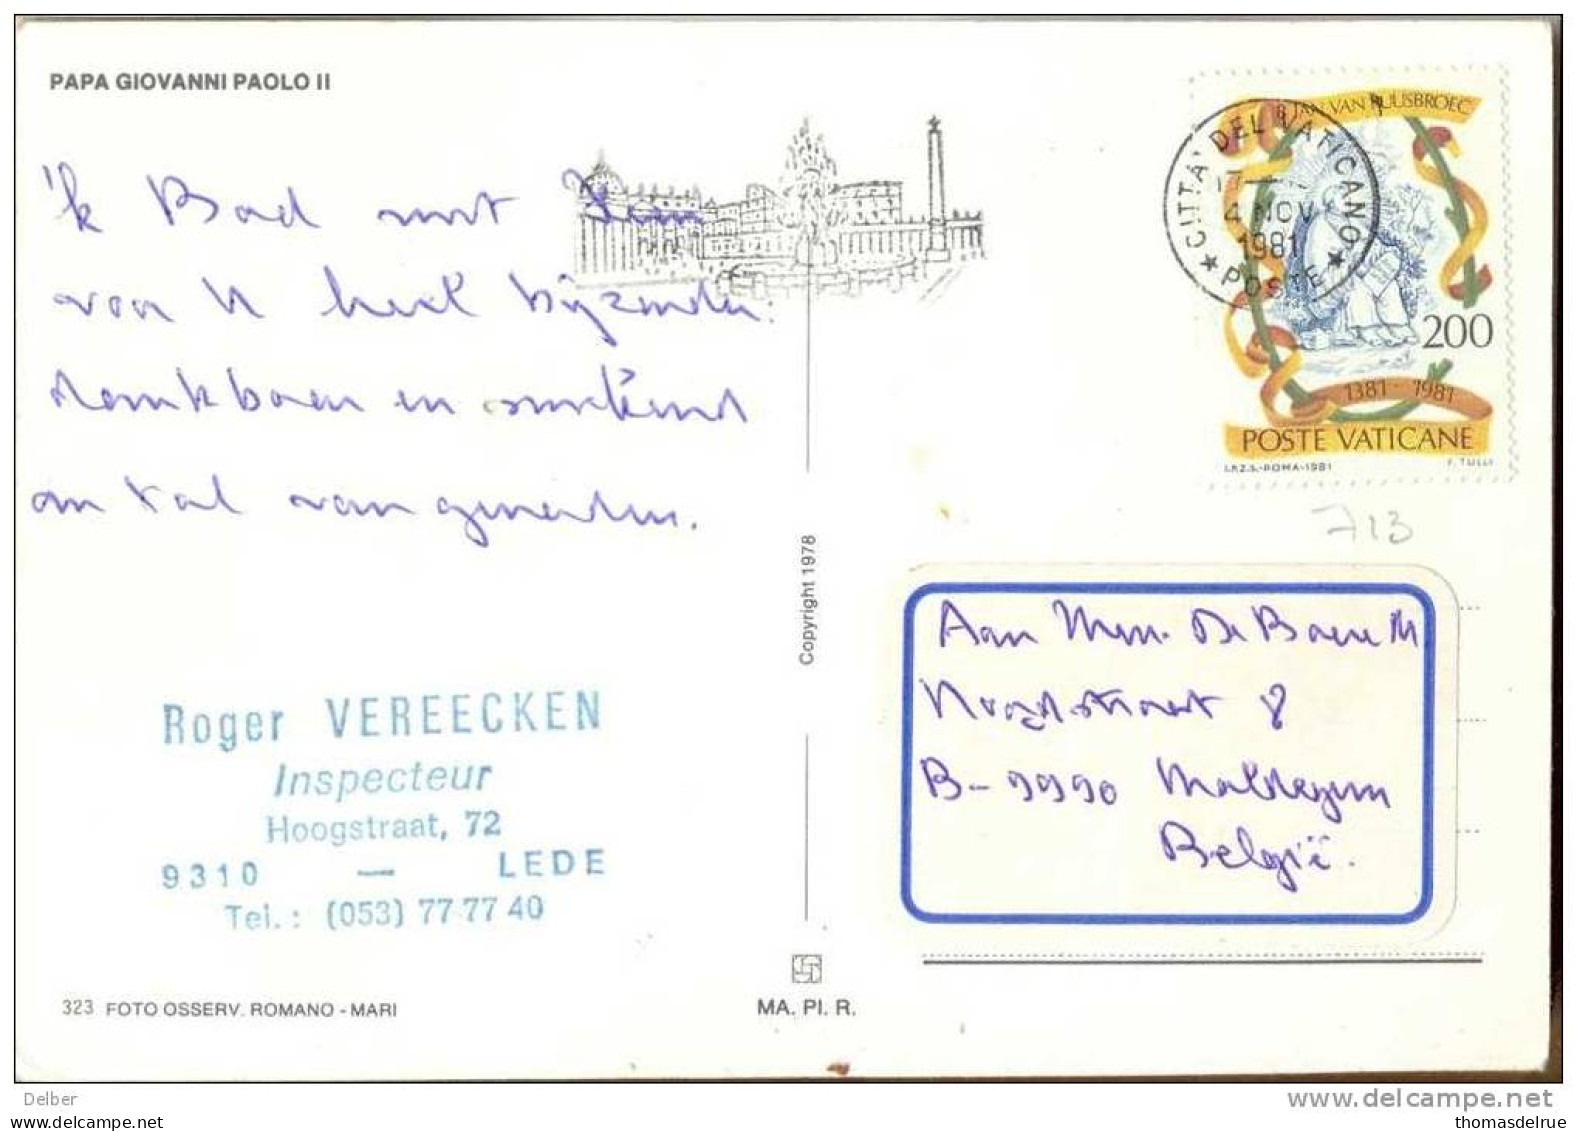 PAPA GIOVANNI PAOLO II
'k Bad met
voor U heel bijzonder:
dankbaar en
en tal van genaden.
Roger VEREECKEN
Inspecteur
Hoogstraat, 72
9310 — LEDE
Tel.: (053) 77 77 40
323 FOTO OSSERV. ROMANO - MARI
Copyright 1978
MA. PI. R.
B. JAN VAN RUUSBROEC
CITTA' DEL VATICANO
17—
4 NOV
1981
★ POSTE ★
200
1381 - 1981
POSTE VATICANE
I.P.Z.S.-ROMA-1981 F. TULLI
713
Aan Mevr. De Baere M
Noordstraat 8
B-9990 Maldegem
België.
Delber
www.delcampe.net
thomasdelrue